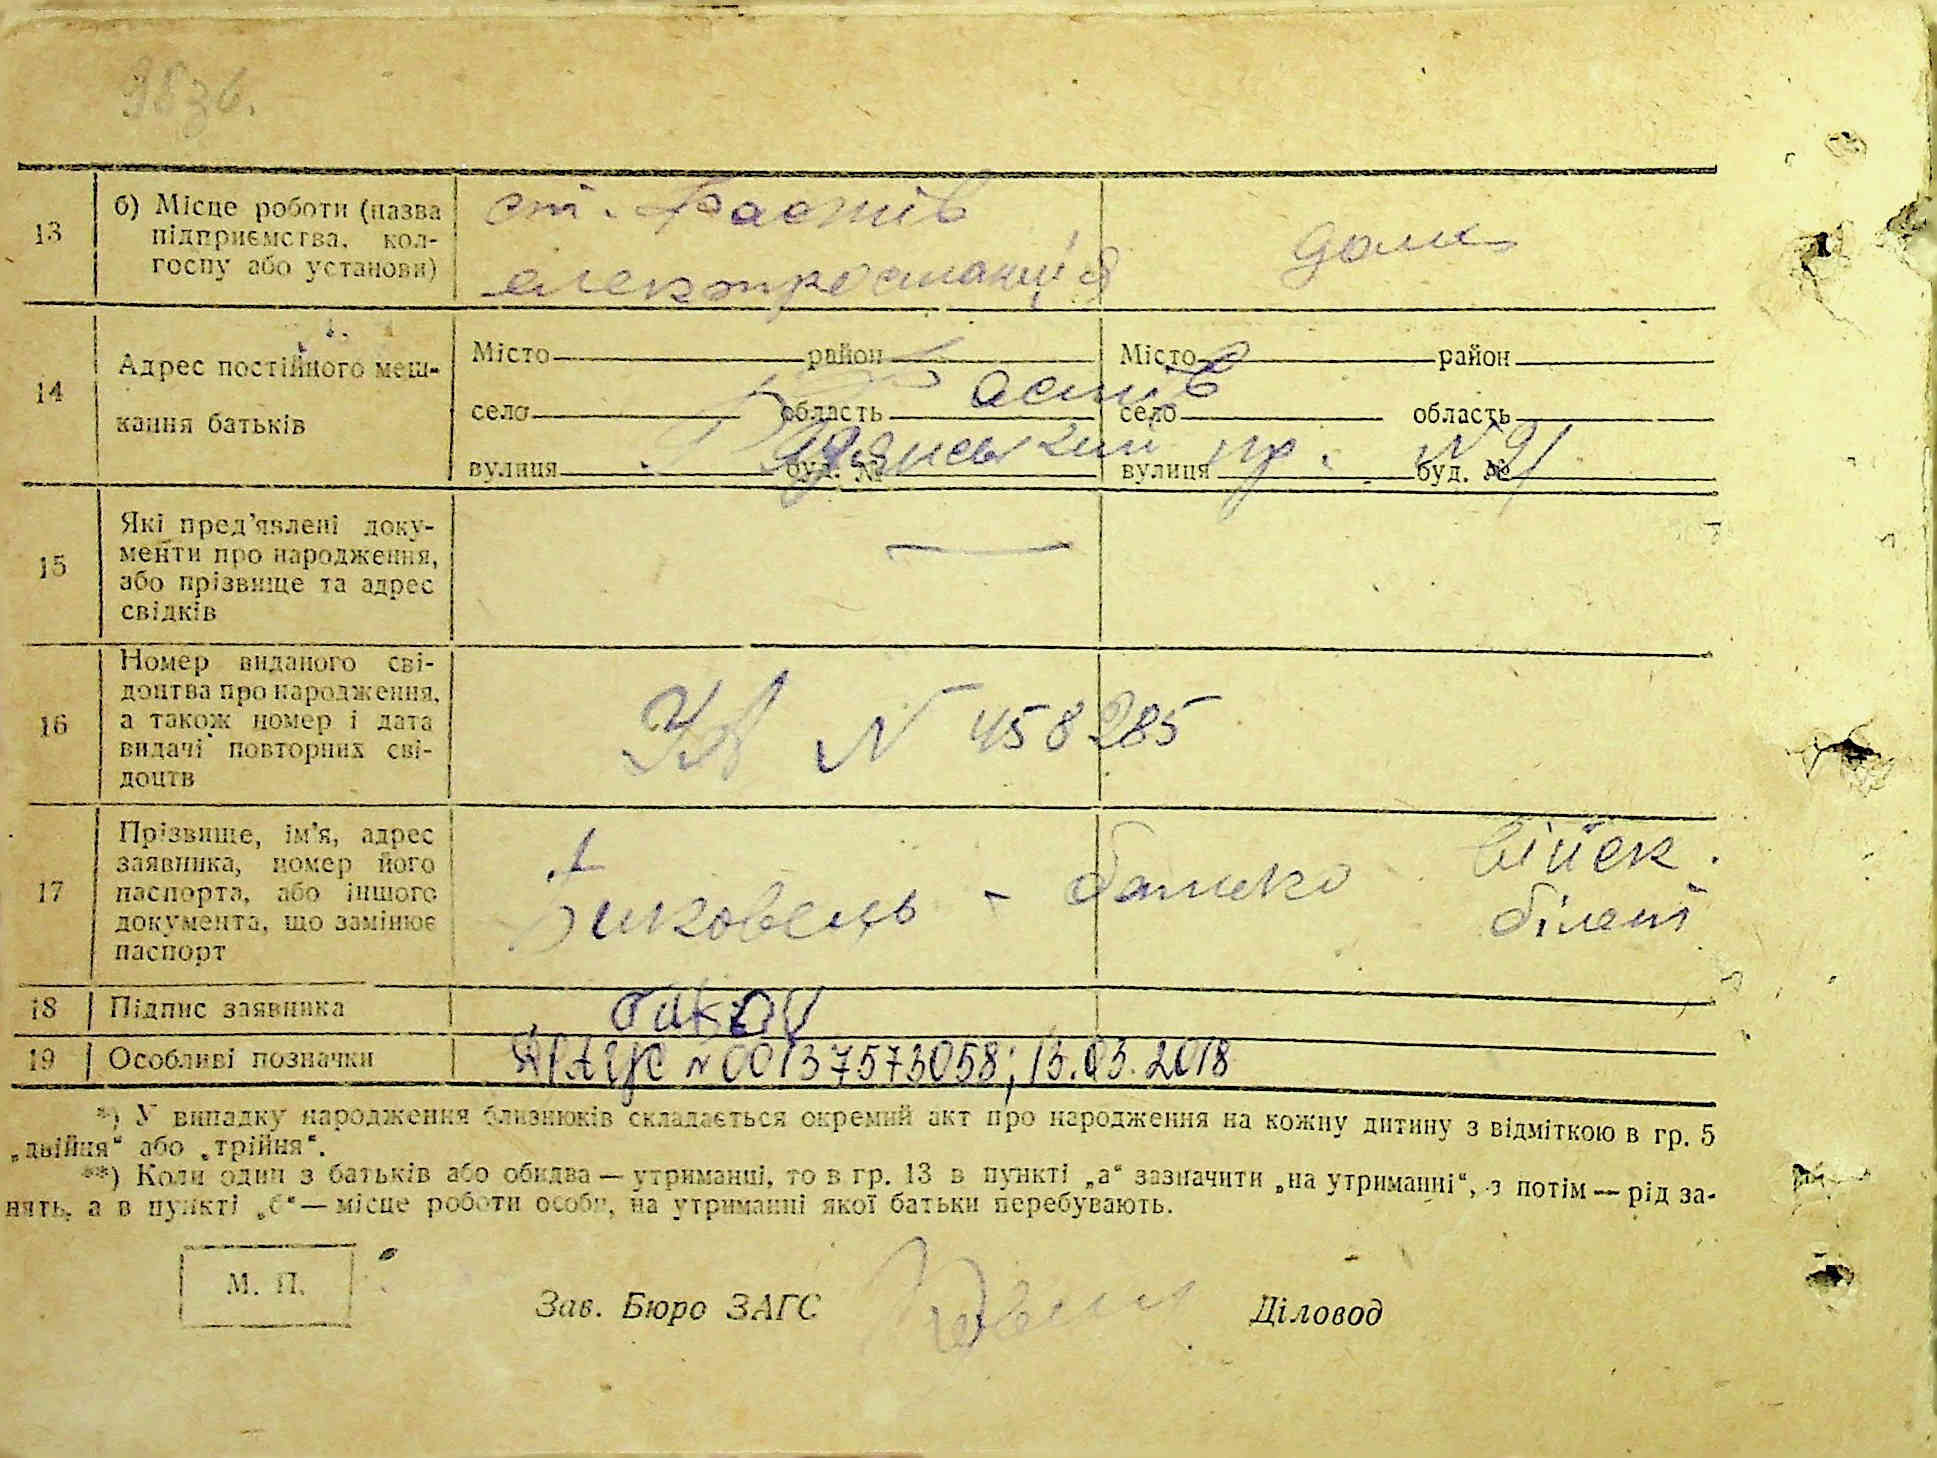 13
б) Місце роботи (назва
підприємства, кол-
госпу або установи)
ст. Фастів
електростанція
дома
14
Адрес постійного меш-
кання батьків
Місто район Місто район
Фастів
село область село область
Радянський пр. №21
вулиця буд. № вулиця буд. №
15
Які пред'явлені доку-
менти про народження,
або прізвище та адрес
свідків
—
16
Номер виданого сві-
доцтва про народження,
а також номер і дата
видачі повторних сві-
доцтв
N 458285
17
Прізвище, ім'я, адрес
заявника, номер його
паспорта, або іншого
документа, що замінює
паспорт
- батько
військ.
білет
18 Підпис заявника
19 Особливі позначки
ДРАЦС №00137573058; 13.03.2018
*) У випадку народження близнюків складається окремий акт про народження на кожну дитину з відміткою в гр. 5
„двійня“ або „трійня“.
**) Коли один з батьків або обидва — утриманці, то в гр. 13 в пункті „а“ зазначити „на утриманні“, а потім — рід за-
нять, а в пункті „б“ — місце роботи особи, на утриманні якої батьки перебувають.
М. П.
Зав. Бюро ЗАГС
Діловод